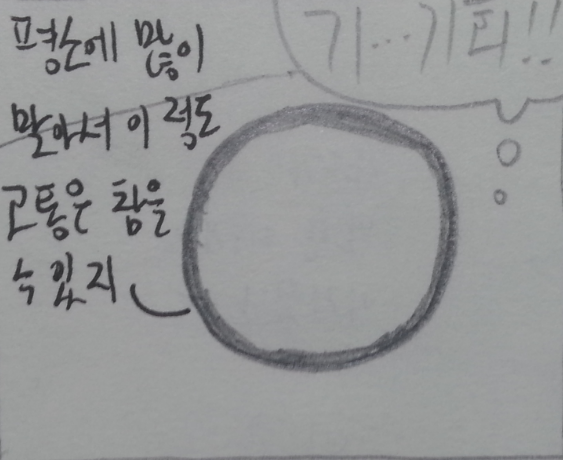 평소에 많이
맞아서 이 정도
고통은 참을
수 있지
기...